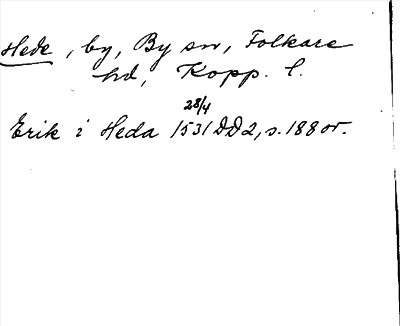 Hede, by, By sn, Folkare
hd, Kopp. l.
28/4
Erik i Heda 1531 DD2, s. 188 or.